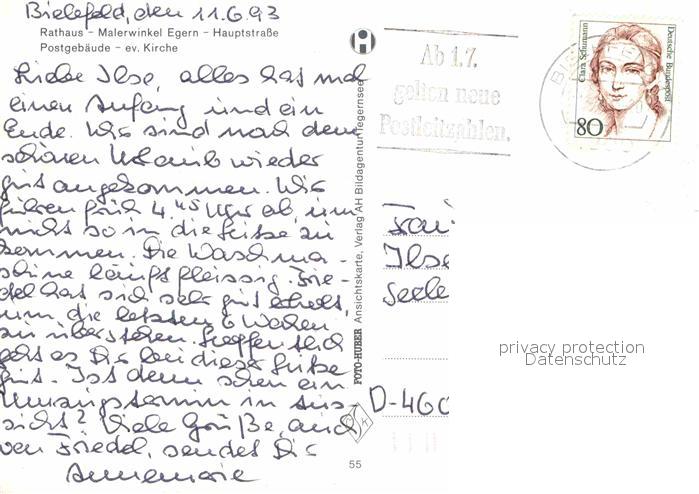 Bielefeld, den 11.6.93
Rathaus – Malerwinkel Egern – Hauptstraße
Postgebäude – ev. Kirche
Liebe Ilse, alles hat mal
einen Anfang und ein
Ende. Wir sind nach dem
schönen Urlaub wieder
gut angekommen. Wir
fuhren früh 4.45 Uhr ab, um
nicht so in die Hitze zu
kommen. Die Waschma-
schine läuft fleissig. Frie-
del hat sich sehr gut erholt,
um die letzten 6 Wochen
zu überstehen. Hoffentlich
geht es Dir bei dieser Hitze
gut. Ist denn schon ein
Umzugstermin in Aus-
sicht? Viele Grüße, auch
von Friedel, sendet Dir
Annemarie
FOTO-HUBER Ansichtskarte, Verlag AH Bildagentur Tegernsee
55
Ab 1.7.
gelten neue
Postleitzahlen.
Clara Schumann
Deutsche Bundespost
80
Frau
Ilse
D-460
privacy protection
Datenschutz